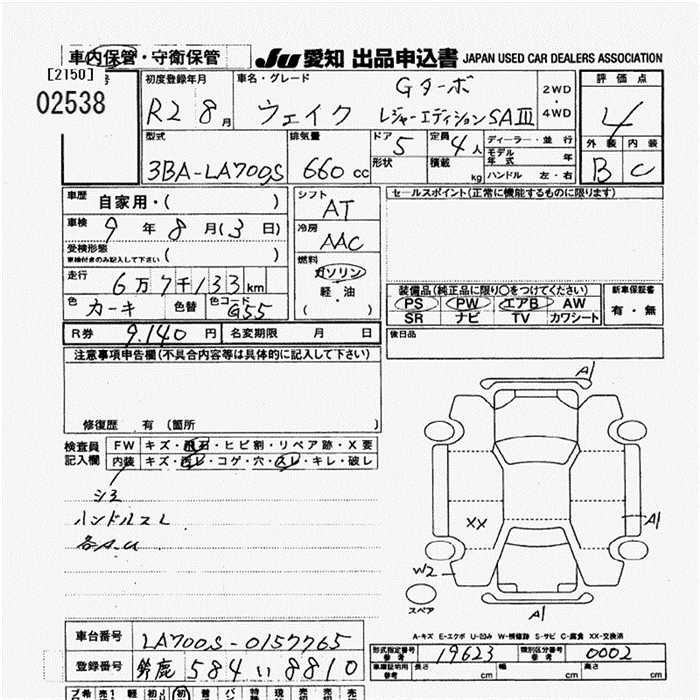 車内保管・守衛保管
JU 愛知 出品申込書 JAPAN USED CAR DEALERS ASSOCIATION
[2150] 号
02538
初度登録年月 車名・グレード Gターボ 2WD・4WD 評価点
R2 8月 ウェイク レジャーエディションSAⅢ 4
型式 排気量 ドア 5 定員 4人 ディーラー・並行 外装 内装
3BA-LA700S 660 cc 形状 積載 kg モデル年式 年 B C
ハンドル 左・右
車歴 自家用・( ) シフト AT セールスポイント(正常に機能するものに限ります)
車検 9年8月(3日) 冷房 AAC
受検形態 車検付きのみ記入して下さい ( ) 燃料 ガソリン 軽・油 ( )
走行 6万7千133km 装備品(純正品に限り○をつけてください) 新車保証書
色 カーキ 色替 色コード G55 PS PW エアB AW 有・無
SR ナビ TV カワシート
R券 9,140円 名変期限 月 日 後日品
注意事項申告欄(不具合内容等は具体的に記入して下さい)
修復歴 有 (箇所 )
検査員記入欄 FW キズ・飛石・ヒビ割・リペア跡・X要
内装 キズ・汚レ・コゲ・穴・スレ・キレ・破レ
シミ
ハンドルスレ
各A.U
A1
XX
A1
W2
スペア
A1
A-キズ E-エクボ U-凹み W-補修跡 S-サビ C-腐食 XX-交換済
車台番号 LA700S-0157765
登録番号 鈴鹿 584 い 8810
形式指定番号 参考 19623 類別区分番号 参考 0002
車庫証明用 参考 長さ cm 幅 cm 高さ cm